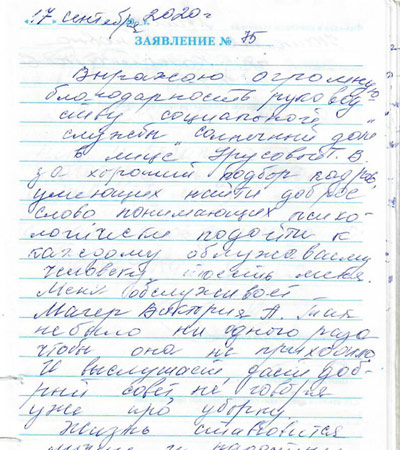 17 сентября 2020 г
ЗАЯВЛЕНИЕ № 75
Выражаю огромную
благодарность руковод-
ству социальной
службы "Солнечный дом"
в лице Урусовой Г. В.
за хороший подбор кадров,
умеющих найти доброе
слово понимающих психо-
логически подойти к
каждому обслуживаему
человеку
Меня обслуживает
Магер Виктория А. Так
не было ни одного раза
чтобы она не приходила
И выслушает, даст доб-
рый совет, не говоря
уже про уборку.
Жизнь становится